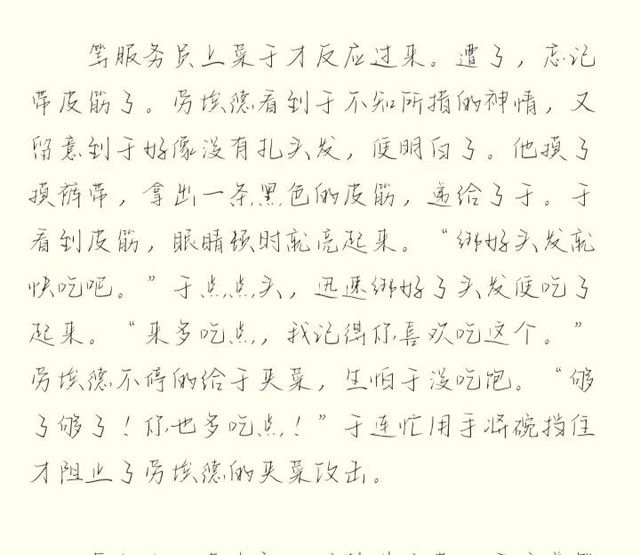 等服务员上菜于才反应过来。遭了，忘记
带皮筋了。劳埃德看到于不知所措的神情，又
留意到于好像没有扎头发，便明白了。他摸了
摸裤带，拿出一条黑色的皮筋，递给了于。于
看到皮筋，眼睛顿时就亮起来。“绑好头发就
快吃吧。”于点点头，迅速绑好了头发便吃了
起来。“来多吃点，我记得你喜欢吃这个。”
劳埃德不停的给于夹菜，生怕于没吃饱。“够
了够了！你也多吃点！”于连忙用手将碗挡住
才阻止了劳埃德的夹菜攻击。